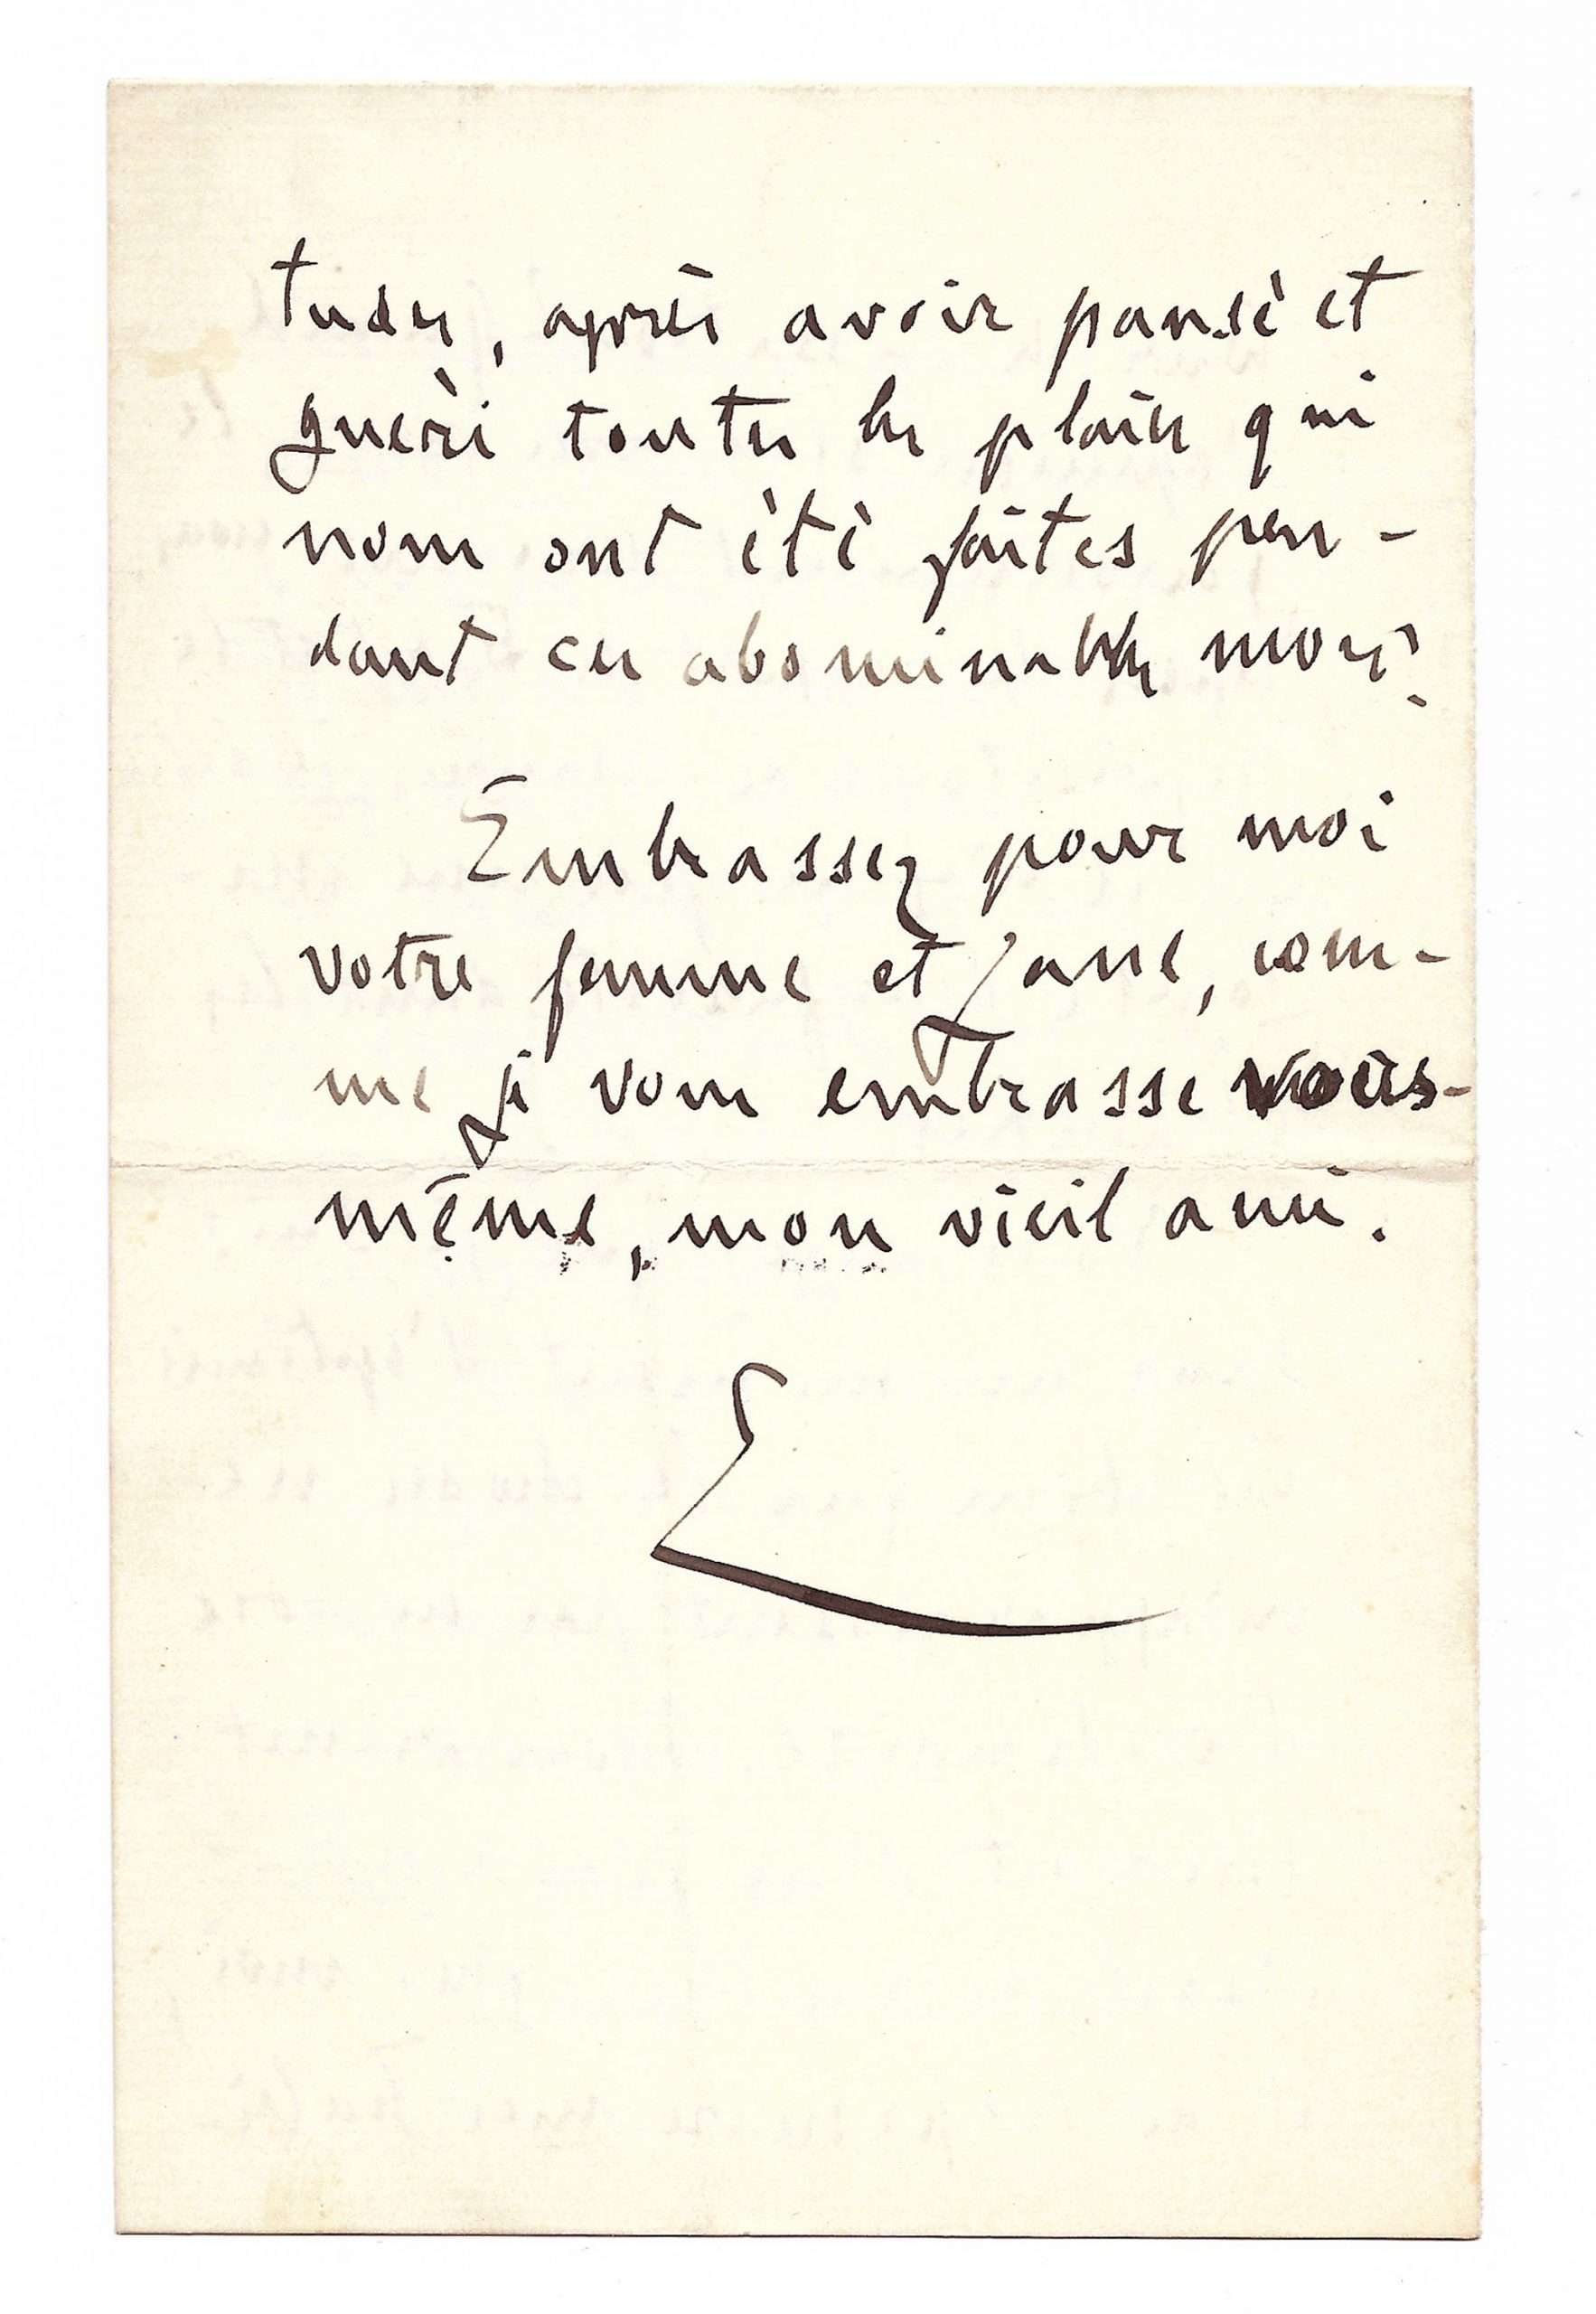 tudes, après avoir pansé et
guéri toutes les plaies qui
nous ont été faites pen-
dant ces abominables mois?
Embrassez pour moi
votre femme et Jane, com-
me je vous embrasse vous-
même, mon vieil ami.